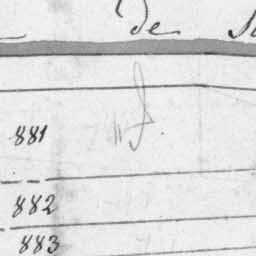 de
881
882
883